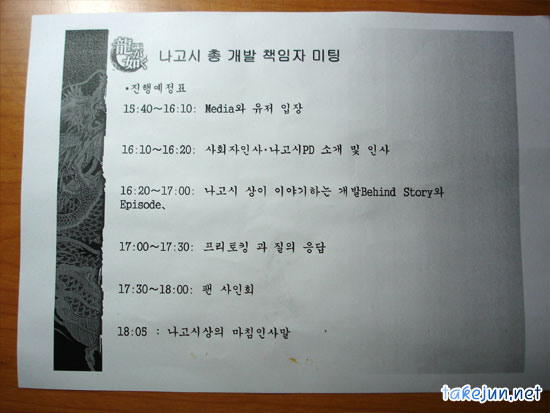 龍が如く
나고시 총 개발 책임자 미팅
•진행예정표
15:40~16:10: Media와 유저 입장
16:10~16:20: 사회자인사·나고시PD 소개 및 인사
16:20~17:00: 나고시 상이 이야기하는 개발Behind Story와
Episode、
17:00~17:30: 프리토킹 과 질의 응답
17:30~18:00: 팬 사인회
18:05 : 나고시상의 마침인사말
takejun.net